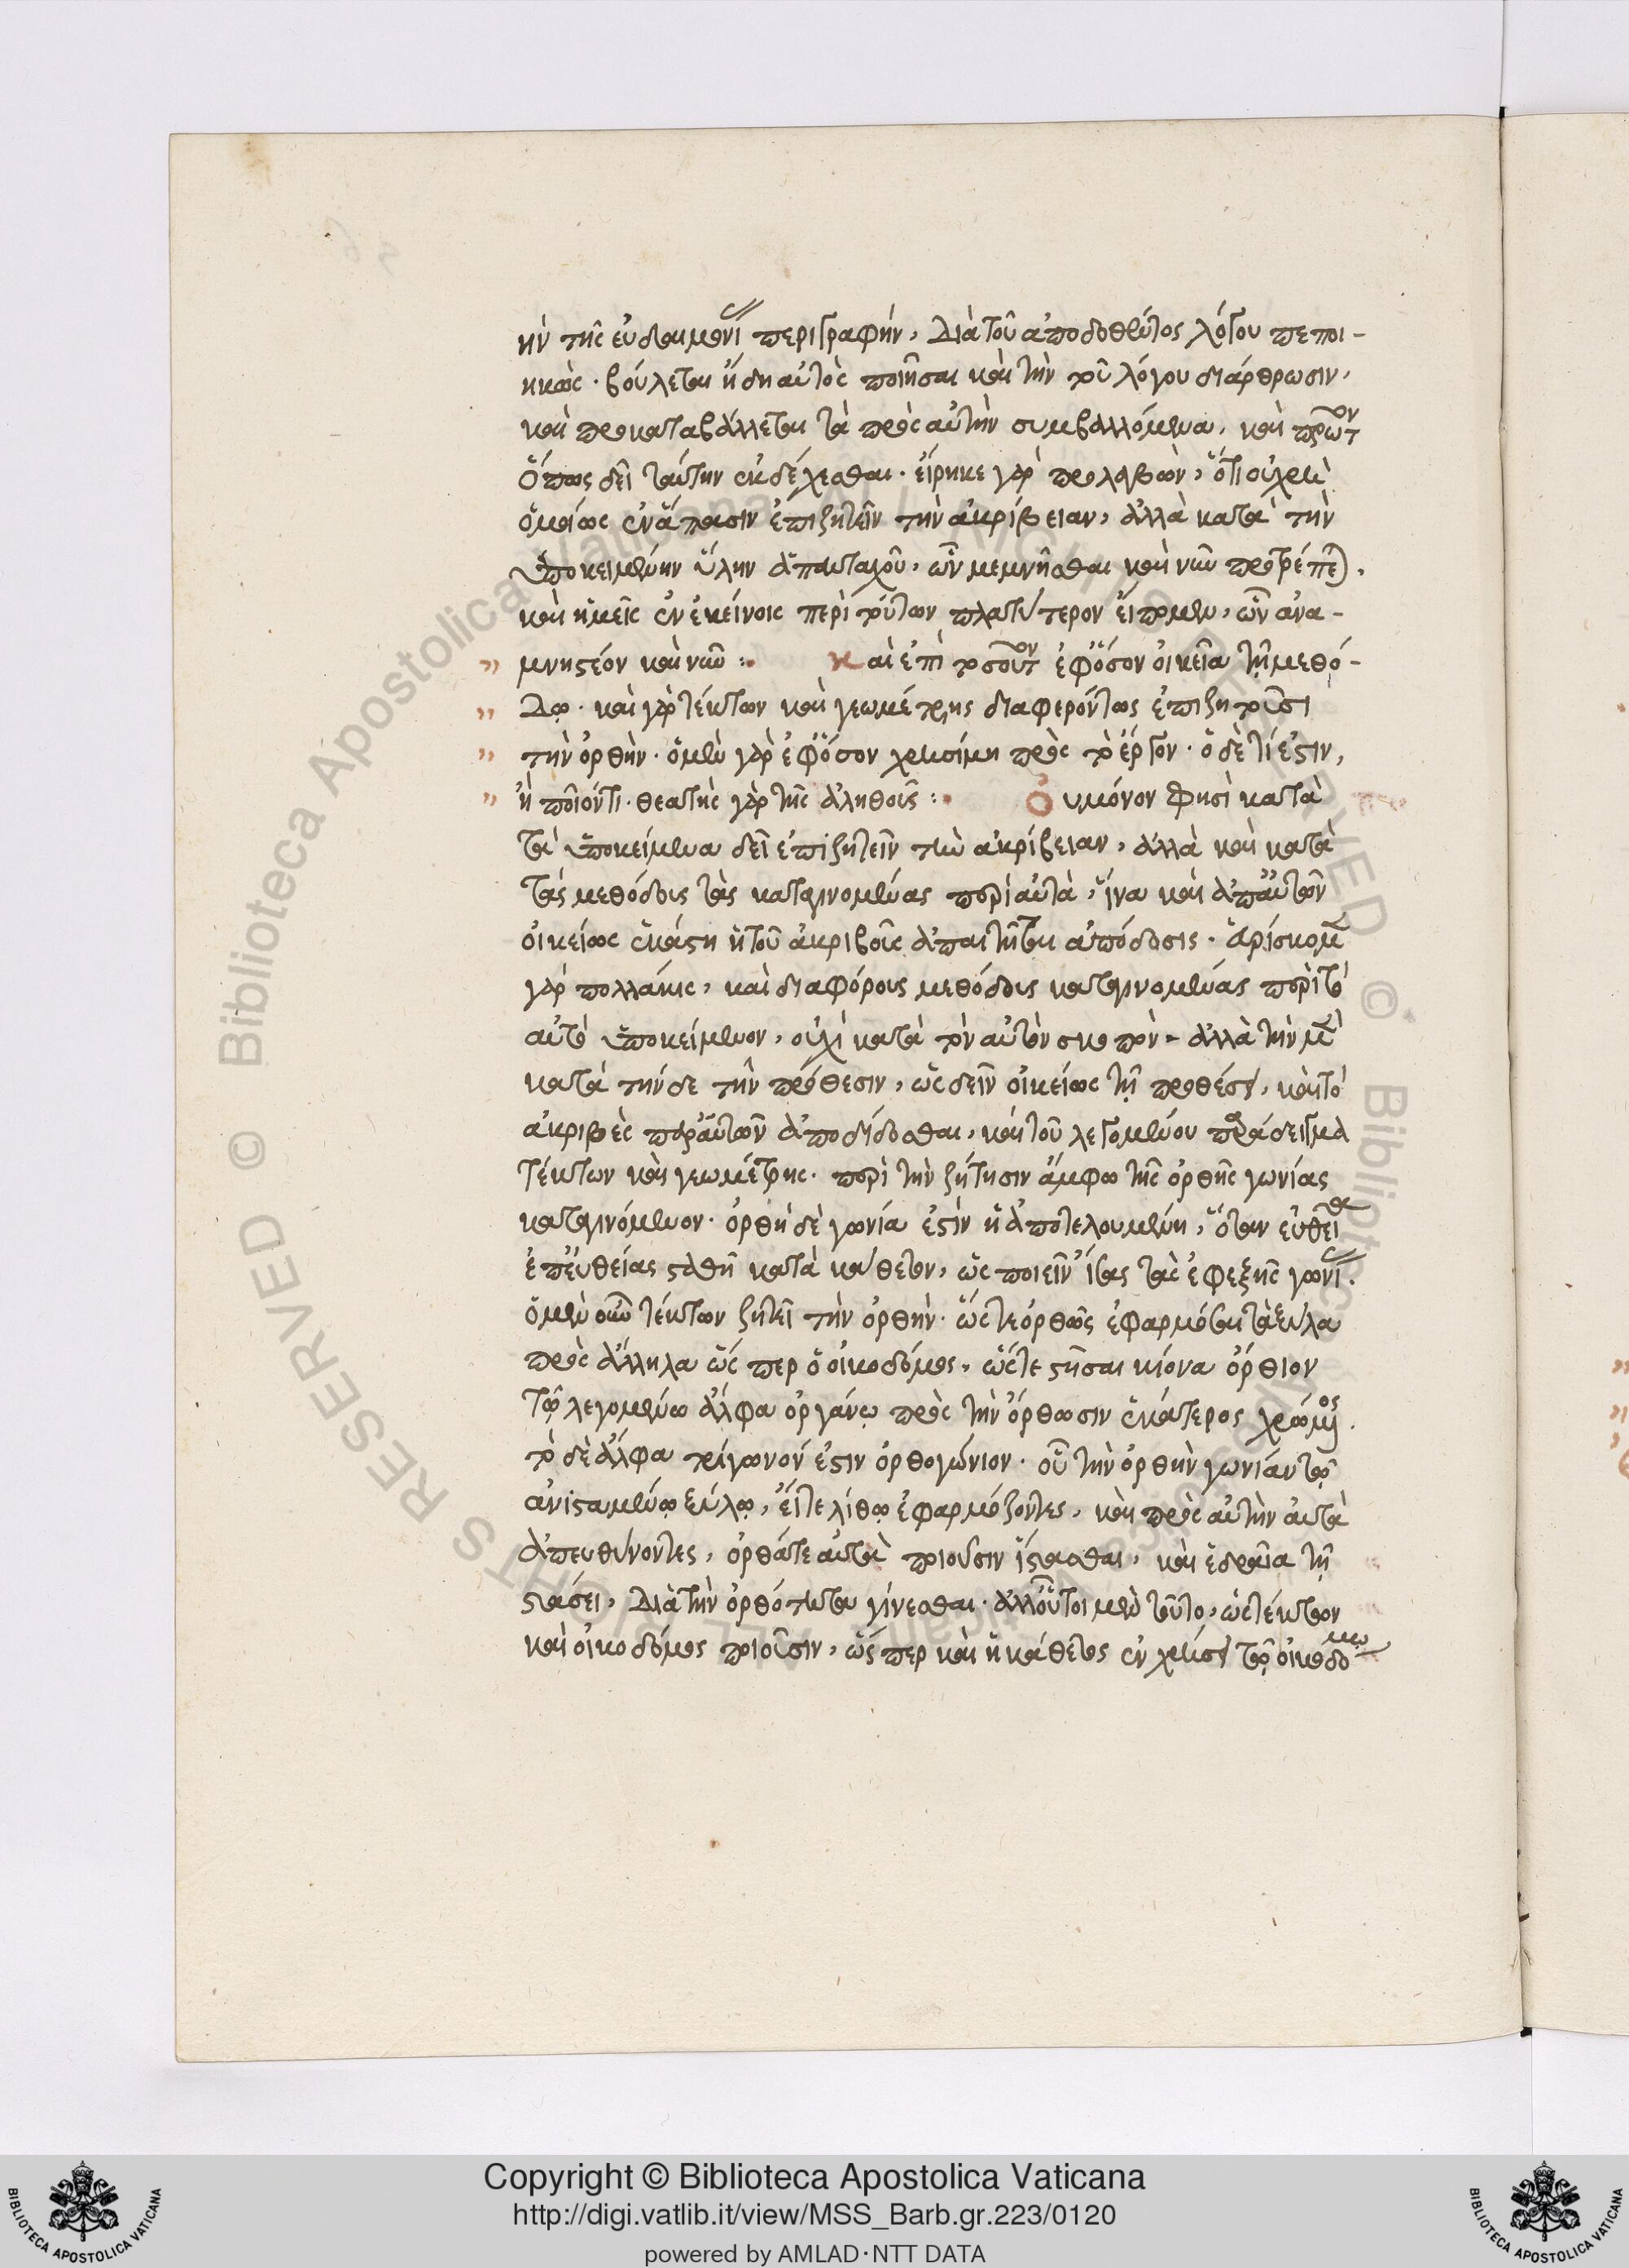 ην της εὐδαιμονί περιγραφήν, διὰ τοῦ ἀποδοθέντος λόγου πεποι-
ηκὼς. βούλεται ἤδη αὐτὸς ποιῆσαι καὶ τὴν τοῦ λόγου διάρθρωσιν,
καὶ προκαταβάλλεται τὰ πρὸς αὐτὴν συμβαλλόμενα, καὶ πρῶτον
ὅπως δεῖ ταύτην ἐκδέχεσθαι. εἴρηκε γὰρ προλαβὼν, ὅτι οὐ χρὴ
ὁμοίως ἐν ἅπασιν ἐπιζητεῖν τὴν ἀκρίβειαν, ἀλλὰ κατὰ τὴν
ὑποκειμένην ὕλην ἁπανταχοῦ, ὧν μεμνῆσθαι καὶ νῦν προτρέπεται.
καὶ ἡμεῖς ἐν ἐκείνοις περὶ τούτων πλατύτερον εἴπομεν, ὧν ἀνα-
μνηστέον καὶ νῦν :. και ἐπὶ τοσοῦτον ἐφ' ὅσον οἰκεῖα τῇ μεθό-
δῳ. καὶ γὰρ τέκτων καὶ γεωμέτρης διαφερόντως ἐπιζητοῦσι
τὴν ὀρθὴν. ὁ μὲν γὰρ ἐφ' ὅσον χρησίμη πρὸς τὸ ἔργον. ὁ δὲ τί ἐστιν,
ἢ ποῖόν τι. θεατὴς γὰρ τῆς ἀληθοῦς :. Οὐ μόνον φησὶ κατὰ
τὰ ὑποκείμενα δεῖ ἐπιζητεῖν τὴν ἀκρίβειαν, ἀλλὰ καὶ κατὰ
τὰς μεθόδους τὰς καταγινομένας περὶ αὐτὰ, ἵνα καὶ ἀπ' αὐτῶν
οἰκείως ἑκάστη ἡ τοῦ ἀκριβοῦς ἀπαιτῆται ἀπόδοσις. εὑρίσκομεν
γὰρ πολλάκις, καὶ διαφόρους μεθόδους καταγινομένας περὶ τὸ
αὐτὸ ὑποκείμενον, οὐχὶ κατὰ τὸν αὐτὸν σκοπὸν - ἀλλὰ τὴν μὲν
κατὰ τήνδε τὴν πρόθεσιν, ὡς δεῖν οἰκείως τῇ προθέσει, καὶ τὸ
ἀκριβὲς παρ' αὐτῶν ἀποδίδοσθαι, καὶ τοῦ λεγομένου παράδειγμα
τέκτων καὶ γεωμέτρης. περὶ τὴν ζήτησιν ἄμφω τῆς ὀρθῆς γωνίας
καταγινόμενον. ὀρθὴ δὲ γωνία ἐστὶν ἡ ἀποτελουμένη, ὅταν εὐθεῖα
ἐπ' εὐθείας σταθῇ κατὰ κάθετον, ὡς ποιεῖν ἴσας τὰς ἐφεξῆς γωνί.
ὁ μὲν οὖν τέκτων ζητεῖ τὴν ὀρθὴν. ὥστε ὀρθῶς ἐφαρμόσαι τὰ ξύλα
πρὸς ἄλληλα ὥσπερ ὁ οἰκοδόμος, ὥστε στῆσαι κίονα ὄρθιον
τῷ λεγομένῳ ἄλφα ὀργάνῳ πρὸς τὴν ὄρθωσιν ἑκάτερος χρώμενος.
τὸ δὲ ἄλφα τρίγωνόν ἐστιν ὀρθογώνιον. οὗ τὴν ὀρθὴν γωνίαν τῷ
ἀνισταμένῳ ξύλῳ, εἴτε λίθῳ ἐφαρμόζοντες, καὶ πρὸς αὐτὴν αὐτὰ
ἀπευθύνοντες, ὀρθά τε αὐτὰ ποιοῦσιν ἵστασθαι, καὶ ἑδραῖα τῇ
στάσει, διὰ τὴν ὀρθότητα γίνεσθαι. ἀλλ' οὗτοι μὲν τοῦτο, ὡς τέκτων
καὶ οἰκοδόμος ποιοῦσιν, ὥσπερ καὶ ἡ κάθετος ἐν χρήσει τῷ οἰκοδόμῳ
Copyright © Biblioteca Apostolica Vaticana
http://digi.vatlib.it/view/MSS_Barb.gr.223/0120
powered by AMLAD·NTT DATA